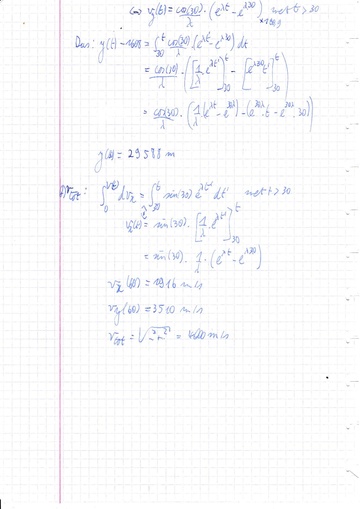 vy(t) = cos(30)/λ · (e^λt − e^λ30) met t > 30
Dus: y(t) − 1608 = ∫_30^t cos(30)/λ (e^λt − e^λ30) dt
= cos(30)/λ · ([1/λ e^λt']_30^t − [e^λ30 t']_30^t)
= cos(30)/λ · (1/λ (e^λt − e^30λ) − (e^30λ · t − e^30λ · 30))
y(60) = 29588 m
v_tot : ∫_0^v(t) dvx = ∫_30^t sin(30) e^λt' dt' met t > 30
vx(t) = sin(30) · [1/λ e^λt']_30^t
= sin(30) · 1/λ · (e^λt − e^λ30)
vx(60) = 1916 m/s
vy(60) = 3510 m/s
v_tot = = 4000 m/s